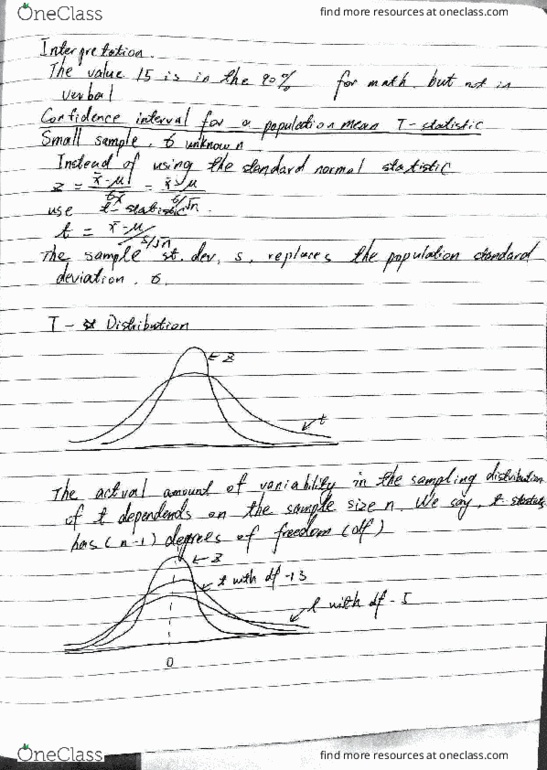 OneClass
find more resources at oneclass.com
Interpretation.
The value 15 is in the 90% for math. but not in
verbal
Confidence interval for a population mean T-statistic
Small sample, σ unknown
Instead of using the standard normal statistic
z = x̄-μ/σx̄ = x̄-μ/σ/√n
use t-statistic.
t = x̄-μ/s/√n
The sample st. dev, s, replaces the population standard
deviation, σ.
T - Distribution
z
t
The actual amount of variability in the sampling distribution
of t dependends on the sample size n. We say, t-
has (n-1) degrees of freedom (df)
z
t with df -13
t with df - 5
0
OneClass
find more resources at oneclass.com